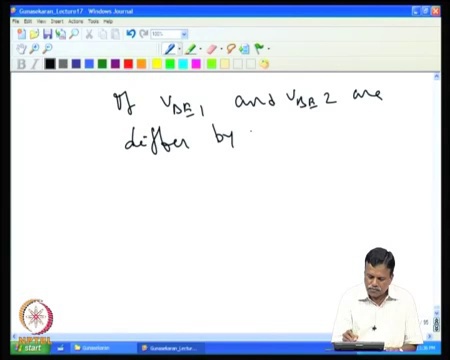 Gunasekaran_Lecture17 - Windows Journal
File Edit View Insert Actions Tools Help
100%
B I
If VBE1 and VBE2 are
differ by
NPTEL
start Gunasekaran Gunasekaran_Lectu...